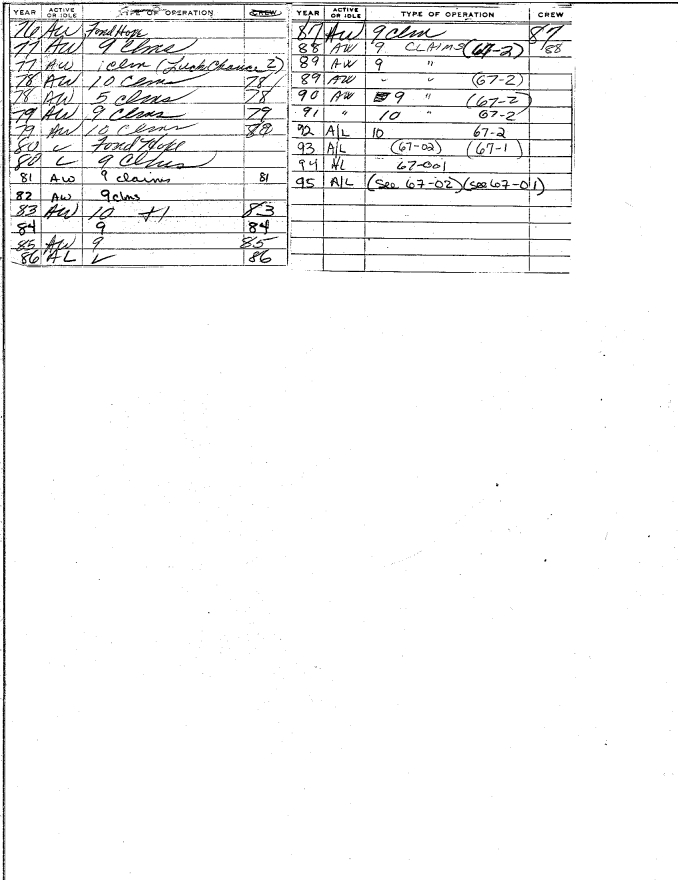 YEAR ACTIVE OR IDLE TYPE OF OPERATION CREW
76 AW Fond Hope
77 AW 9 Clms
77 AW 1 clm (Luck Chance 2)
78 AW 10 Clms 78
78 AW 5 clms 78
79 AW 9 Clms 79
79 AW 10 Clms 80
80 Fond Hope
80 9 Clms
81 AW 9 claims 81
82 AW 9 clms
83 AW 10 +1 83
84 9 84
85 AW 9 85
86 AL ✓ 86
YEAR ACTIVE OR IDLE TYPE OF OPERATION CREW
87 AW 9 clm 87
88 AW 9 CLAIMS (67-2) 88
89 AW 9 "
89 AW " " (67-2)
90 AW 9 " (67-2)
91 " 10 " 67-2
92 A/L 10 67-2
93 A/L (67-02) (67-1)
94 67-001
95 A/L (See 67-02) (see 67-01)